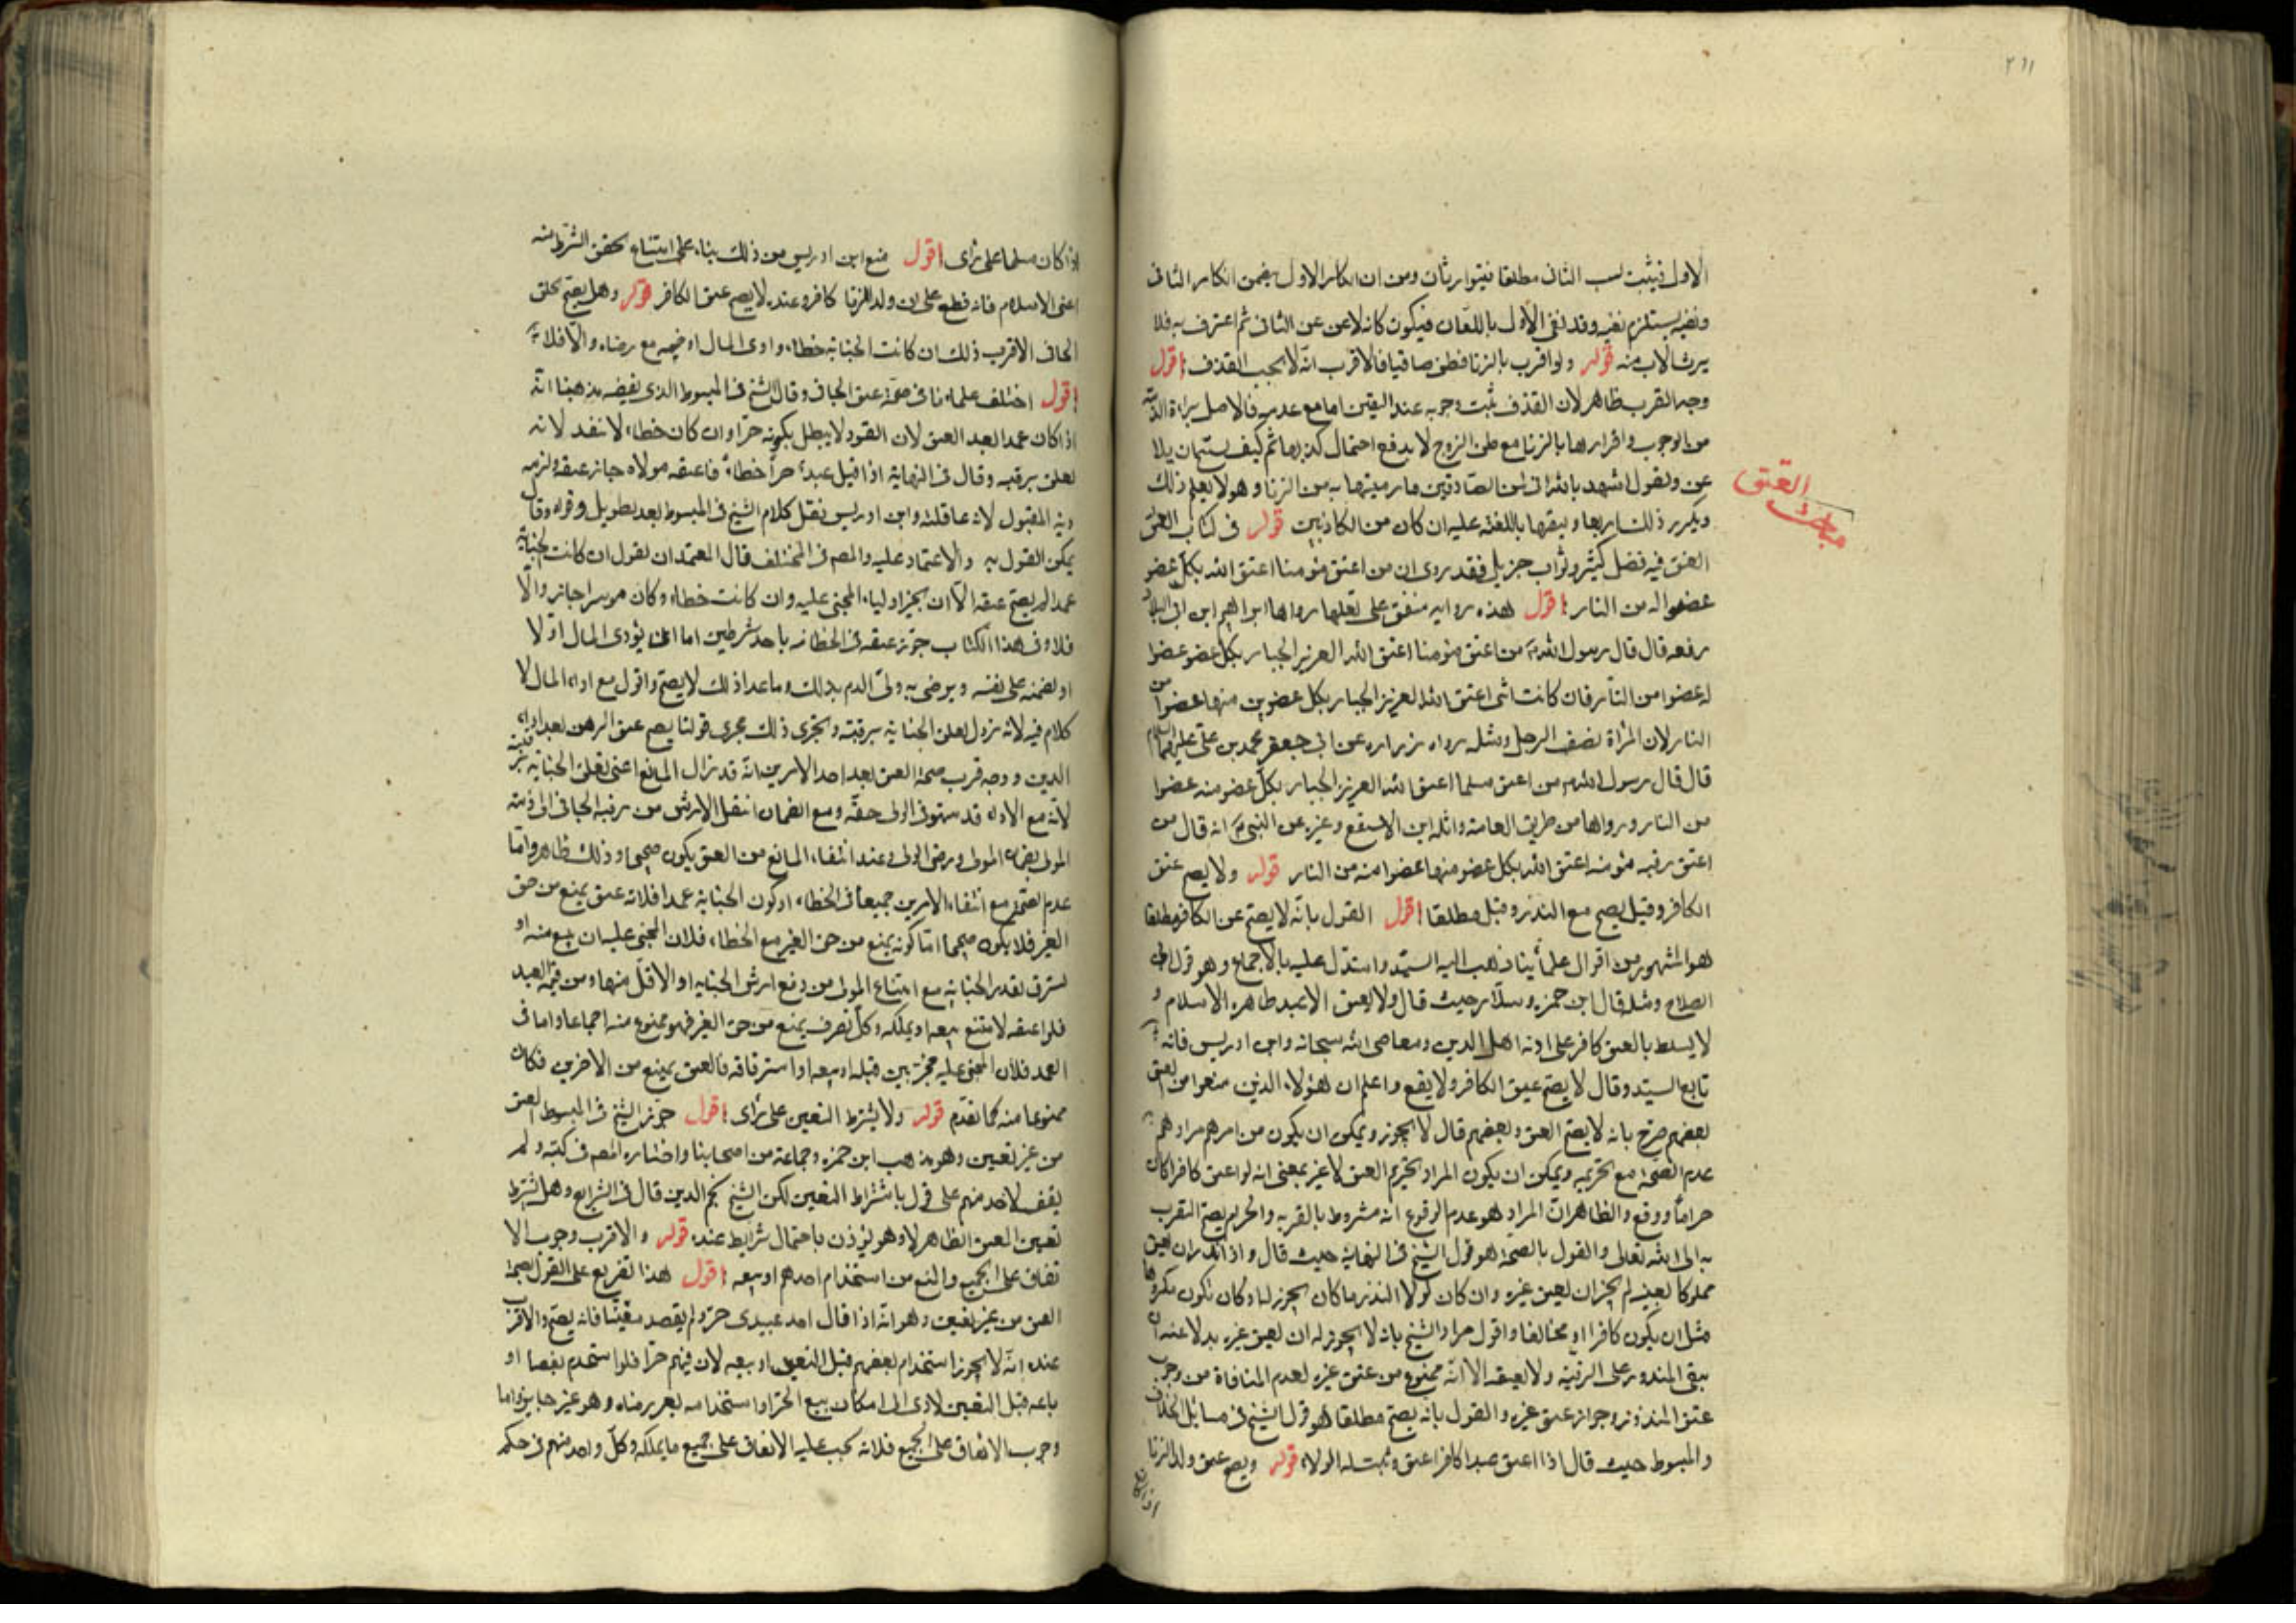 ٢١١
الاول فيثبت نسب الثانى مطلقا فيتوارثان ومن ان انكار الاول يضمن انكار الثانى
ونفيه يستلزم نفيه وقد نفى الاول باللعان فيكون كانه لاعن عن الثانى ثم اعترف به فلا
يرث الاب منه قوله ولو اقرت بالزنا فظن صدقها فالاقرب انه لا يجب القذف اقول
وجه القرب ظاهر لان القذف يثبت وجوبه عند اليقين اما مع عدمه فالاصل براءة الذمة
من الوجوب واقرارها بالزنا مع ظن الزوج لا يدفع احتمال كذبها ثم كيف
عن ويقول اشهد بالله انى لمن الصادقين فيما رميتها به من الزنا وهو لا يعلم ذلك
ويكرر ذلك اربعا ويتبعها باللعنة عليه ان كان من الكاذبين قوله فى كتاب العتق
مباحث العتق
العتق فيه فضل كثير وثواب جزيل فقد روى ان من اعتق مؤمنا اعتق الله بكل عضو
عضوا له من النار اقول هذه رواية متفق على نقلها رواها ابراهيم ابن ابى البلاد
رفعه قال قال رسول الله من اعتق مؤمنا اعتق الله العزيز الجبار بكل عضو عضوا
له عضوا من النار فان كانت انثى اعتق الله العزيز الجبار بكل عضوين منها عضوا من
النار لان المرأة نصف الرجل ومثله رواه زراره عن ابى جعفر محمد بن على عليهما السلام
قال قال رسول الله من اعتق مسلما اعتق الله العزيز الجبار بكل عضو منه عضوا
من النار ورواها من طريق العامة واثلة ابن الاسقع وغيره عن النبى انه قال من
اعتق رقبه مؤمنه اعتق الله بكل عضو منها عضوا منه من النار قوله ولا يصح عتق
الكافر وقيل يصح مع النذر وقيل مطلقا اقول القول بانه لا يصح عتق الكافر مطلقا
هو المشهور من اقوال علمائنا ذهب اليه السيد واستدل عليه بالاجماع وهو قول ابى
الصلاح ومثله قال ابن حمزه وسلار حيث قال ولا يعتق الا عبد ظاهره الاسلام و
لا يسلط بالعتق كافر على اذية اهل الدين ومعاصى الله سبحانه وابن ادريس فانه
تابع السيد وقال لا يصح عتق الكافر ولا يقع واعلم ان هؤلاء الذين منعوا من العتق
بعضهم صرح بانه لا يصح العتق وبعضهم قال لا يجوز ويمكن ان يكون من امرهم مرادهم
عدم الصحة مع تحريمه ويمكن ان يكون المراد تحريم العتق لا غير بمعنى انه لو اعتق كافرا كان
حراما ووقع والظاهر ان المراد هو عدم الوقوع انه مشروط بالقربه والحرام يصح التقرب
به الى الله تعالى والقول بالصحة هو قول الشيخ فى النهاية حيث قال واذا نذر ان يعتق
مملوكا بعينه لم يجز ان يعتق غيره وان كان لولا النذر ما كان يجوز له او كان يكون مكروها
مثل ان يكون كافرا او مخالفا واقول مراد الشيخ بانه لا يجوز له ان يعتق غيره بدلا عنه ان
يبقى المنذور على الرقية ولا يعتقه الا انه ممنوع من عتق غيره لعدم المنافاة من وجوب
عتق المنذور وجواز عتق غيره والقول بانه يصح مطلقا هو قول الشيخ فى مسائل الخلاف
والمبسوط حيث قال اذا اعتق عبدا كافرا عتق وثبت له الولاء قوله ويصح عتق ولد الزنا
اذا كان
اذا كان مسلما على رأى اقول منع ابن ادريس من ذلك بناء على امتناع تحقق الشرط منه
اعنى الاسلام فانه قطع على ان ولد الزنا كافر وعنده لا يصح عتق الكافر قوله وهل يصح عتق
الجانى الاقرب ذلك ان كانت الجناية خطاء وادى المال او ضمنه مع رضاه والا فلا
اقول اختلف علماؤنا فى صحة عتق الجانى وقال الشيخ فى المبسوط الذى يقتضيه مذهبنا انه
اذا كان عمدا نفذ العتق لان القود لا يبطل بكونه حرا وان كان خطاء لا نفذ لانه
تعلق برقبته وقال فى النهاية اذا قتل عبد حرا خطاء فاعتقه مولاه جاز عتقه ولزمه
دية المقتول لانه عاقلته وابن ادريس نقل كلام الشيخ فى المبسوط بعد تطويل وقواه وقال
يمكن القول به والاعتماد عليه والمصنف فى المختلف قال المعتمد ان نقول ان كانت الجناية
عمدا لم يصح عتقه الا ان يجيز اولياء المجنى عليه وان كانت خطاء وكان موسرا جاز والا
فلا وفى هذا الكتاب جوز عتقه فى الخطاء باحد شرطين اما ان يؤدى المال اولا
او يضمنه على نفسه ويرضى به ولى الدم بذلك وما عدا ذلك لا يصح واقول مع اداء المال لا
كلام فيه لانه يزول تعلق الجناية برقبته ويجرى ذلك مجرى قولنا يصح عتق الرهن بعد اداء
الدين ووجه قرب صحة العتق بعد احد الامرين انه قد زال المانع اعنى تعلق الجناية برقبته
لانه مع الاداء قد استوفى الولى حقه ومع الضمان انتقل الارش من رقبة الجانى الى ذمة
المولى بضمان المولى ورضى الولى وعند انتفاء المانع من العتق يكون صحيحا وذلك ظاهر واما
عدم الصحة مع انتفاء الامرين جميعا فى الخطاء او كون الجناية عمدا فلانه عتق يمنع من حق
الغير فلا يكون صحيحا اما كونه يمنع من حق الغير مع الخطاء فلان المجنى عليه ان يبيع منه او
يسترق بقدر الجناية مع امتناع المولى من دفع ارش الجناية او الاقل منها ومن قيمة العبد
فلو اعتقه لامتنع بيعه او يملكه وكل تصرف يمنع من حق الغير فهو ممنوع منه اجماعا واما فى
العمد فلان المجنى عليه مخير بين قتله او بيعه او استرقاقه فالعتق يمنع من الاخرين فكان
ممنوعا منه كما تقدم قوله ولا يشترط التعيين على رأى اقول جوز الشيخ فى المبسوط العتق
من غير تعيين وهو مذهب ابن حمزه وجماعة من اصحابنا واختاره المصنف فى كتبه ولم
يقف لاحد منهم على قول باشتراط التعيين لكن الشيخ نجم الدين قال فى الشرايع وهل يشترط
تعيين المعتق الظاهر لا وهو يؤذن باحتمال شرايط عنده قوله والاقرب وجوب الا
نفاق على الجميع والمنع من استخدام احدهم او بيعه اقول هذا تفريع على القول بصحة
العتق من غير تعيين وهو انه اذا قال احد عبيدى حر ولم يقصد معينا فانه يصح والاقرب
عنده انه لا يجوز استخدام بعضهم قبل التعيين او بيعه لان فيهم حرا فلو استخدم بعضا او
باعه قبل التعيين لادى الى امكان بيع الحر او استخدامه بغير رضاه وهو غير جايز واما
وجوب الانفاق على الجميع فلانه يجب عليه الانفاق على جميع ما يملكه وكل واحد منهم فى حكم